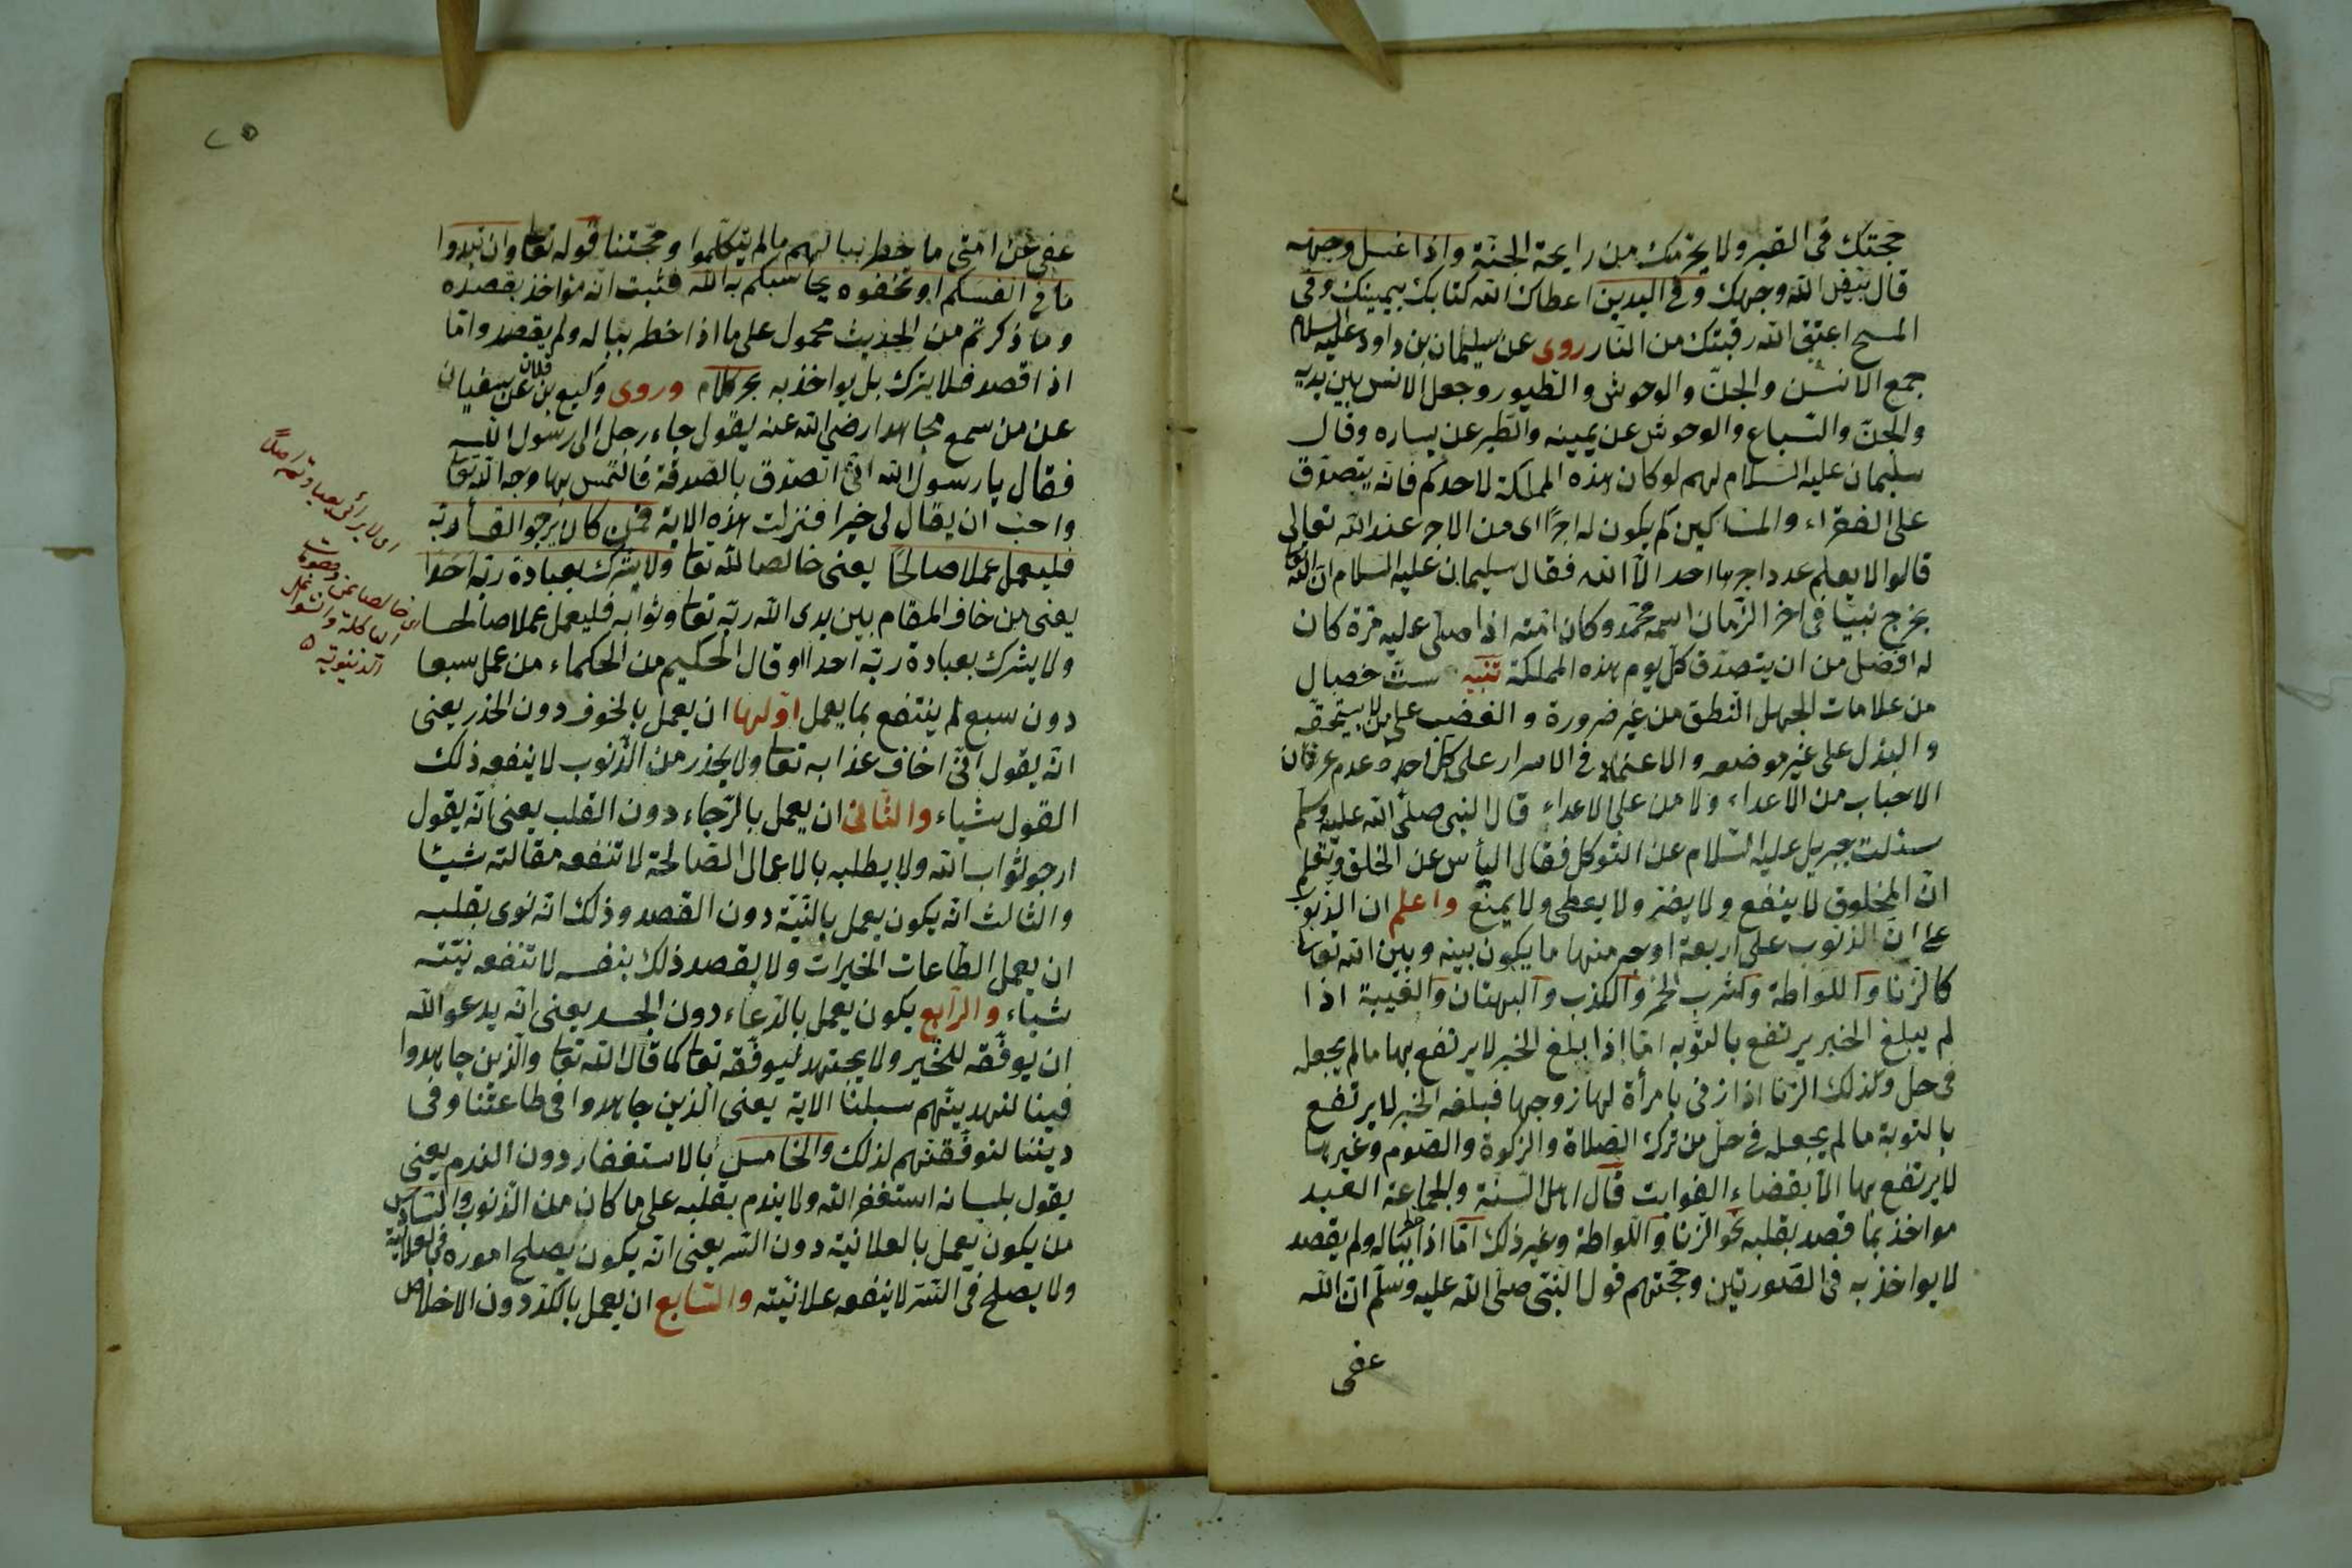 حجتك فى القبر ولا يحرمك من رايحة الجنة واذا غسل وجهه
قال بيض الله وجهك وفى اليدين اعطاك الله كتابك بيمينك وفى
المسح اعتق الله رقبتك من النار روى عن سليمان بن داود عليه السلام
جمع الانس والجن والوحوش والطيور وجعل الانس بين يديه
والجن والسباع والوحوش عن يمينه والطير عن يساره وقال
سليمان عليه السلام لهم لو كان هذه المملكة لاحدكم فانه يتصدق
على الفقراء والمساكين كم يكون له اجرا اى من الاجر عند الله تعالى
قالوا لا يعلم عدد اجرها احد الا الله فقال سليمان عليه السلام ان الله تعا
يخرج نبيا فى اخر الزمان اسمه محمد وكان امته اذا صلى عليه مرة كان
له افضل من ان يتصدق كل يوم بهذه المملكة تنبيه ست خصال
من علامات الجهل النطق من غير ضرورة والغضب على من لا يستحقه
والبذل على غير موضعه والاعتماد فى الاسرار على كل احد وعدم عرفان
الاحباب من الاعداء ولا من على الاعداء قال النبى صلى الله عليه وسلم
سئلت جبريل عليه السلام عن التوكل فقال اليأس عن الخلق وتعلم
ان المخلوق لا ينفع ولا يضر ولا يعطى ولا يمنع واعلم ان الذنوب
على ان الذنوب على اربعة اوجه منها ما يكون بينه وبين الله تعا
كالزنا واللواطة وكشرب الخمر والكذب والبهتان والغيبة اذا
لم يبلغ الخبر يرتفع بالتوبه اما اذا بلغ الخبر لا يرتفع بها ما لم يجعله
فى حل وكذلك الزنا اذا زنى بامرأة لها زوجها فبلغه الخبر لا يرتفع
بالتوبة ما لم يجعله فى حل من ترك الصلاة والزكوة والصوم وغيرها
لا يرتفع بها الا بقضاء الفوايت قال اهل السنة والجماعة العبد
مواخذ بما قصد بقلبه نحو الزنا واللواطة وغير ذلك اما اذا خطر بباله ولم يقصد
لا يواخذ به فى الصورتين وحجتهم قول النبى صلى الله عليه وسلم ان الله
عفى
٢٥
عفى عن امتى ما خطر ببالهم ما لم يتكلموا وحجتنا قوله تعا وان تبدوا
ما فى انفسكم او تخفوه يحاسبكم به الله فثبت انه مؤاخذ بقصده
وما ذكرتم من الحديث محمول على ما اذا خطر بباله ولم يقصد واما
اذا قصد فلا يترك بل يواخذ به بحر كلام وروى وكيع بن فلان عن سفيان
عن من سمع مجاهدا رضى الله عنه يقول جاء رجل الى رسول الله
فقال يا رسول الله انى اتصدق بالصدقة فالتمس بها وجه الله تعا
واحب ان يقال لى خيرا فنزلت هذه الاية فمن كان يرجوا لقاء ربه
فليعمل عملا صالحا يعنى خالصا لله تعا ولا يشرك بعبادة ربه احدا
يعنى من خاف المقام بين يدى الله ربه تعا وثوابه فليعمل عملا صالحا
ولا يشرك بعبادة ربه احدا وقال الحكيم من الحكماء من عمل سبعا
دون سبع لم ينتفع بما يعمل اولها ان يعمل بالخوف دون الحذر يعنى
انه يقول انى اخاف عذابه تعا ولا يحذر من الذنوب لا ينفعه ذلك
القول شياء والثانى ان يعمل بالرجاء دون القلب يعنى انه يقول
ارجو ثواب الله ولا يطلبه بالاعمال الصالحة لا تنفعه مقالته شيئا
والثالث انه يكون يعمل بالنية دون القصد وذلك انه نوى بقلبه
ان يعمل الطاعات الخيرات ولا يقصد ذلك بنفسه لا تنفعه نيته
شياء والرابع يكون يعمل بالدعاء دون الجهد يعنى انه يدعو الله
ان يوفقه للخير ولا يجتهد ليوفقه تعا كما قال الله تعا والذين جاهدوا
فينا لنهدينهم سبلنا الاية يعنى الذين جاهدوا فى طاعتنا وفى
ديننا لنوفقنهم لذلك والخامس بالاستغفار دون الندم يعنى
يقول بلسانه استغفر الله ولا يندم بقلبه على ما كان من الذنوب والسادس
من يكون يعمل بالعلانية دون السر يعنى انه يكون يصلح اموره فى العلانية
ولا يصلح فى السر لا ينفعه علانيته والسابع ان يعمل بالكد دون الاخلاص
اى لا يرائى بعبادته اصلا
اى خالصا عن
الدنيوية